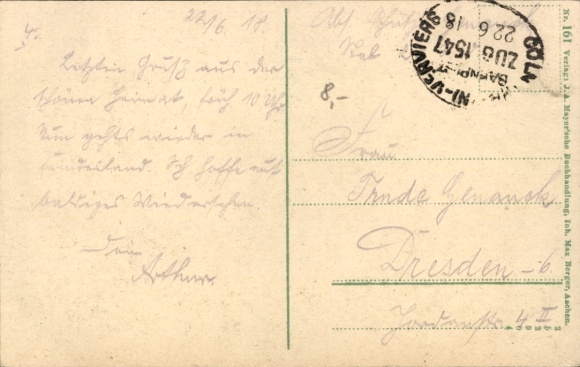 22/6. 18.
Letzten Gruß aus der
schönen Heimat, früh 10 Uhr
Nun gehts wieder in
Feindesland. Ich hoffe auf
baldiges Wiedersehen.
Dein
Arthur.
Abs.
CÖLN
VERVIERS
BAHNPOST
ZUG 1547
22 6 18
8,-
Frau
Trude
Dresden -6.
4 II
Nr. 161 Verlag: J. A. Mayer'sche Buchhandlung, Inh. Max Berger, Aachen.